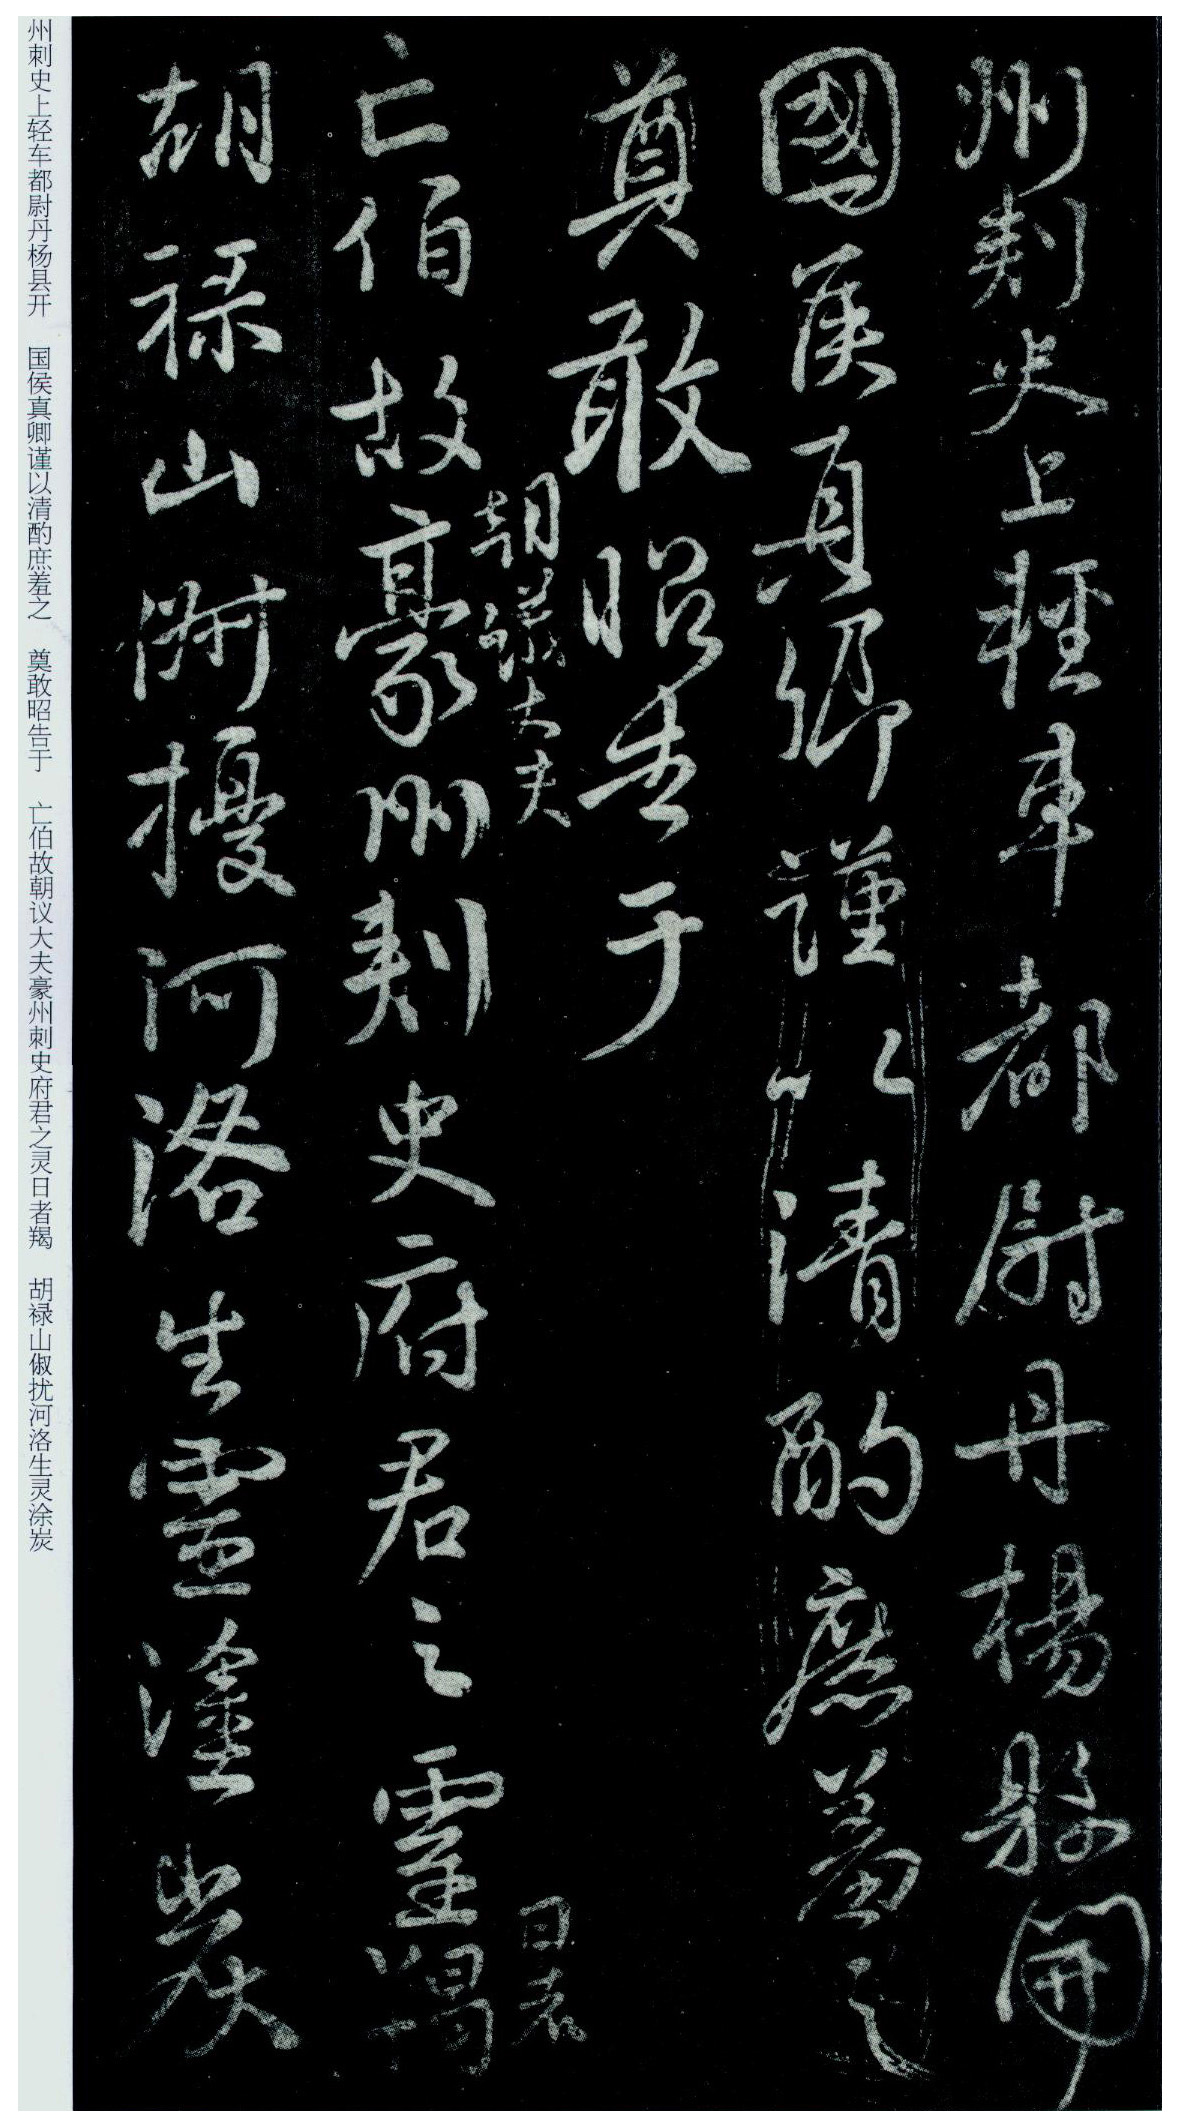 州刺史上輕車都尉丹楊縣開
國侯真卿謹以清酌庶羞之
奠敢昭告于
亡伯故豪州刺史府君之靈羯
朝議大夫
日者
胡祿山俶擾河洛生靈塗炭
州刺史上轻车都尉丹杨县开 国侯真卿谨以清酌庶羞之 奠敢昭告于 亡伯故朝议大夫豪州刺史府君之灵日者羯 胡禄山俶扰河洛生灵涂炭